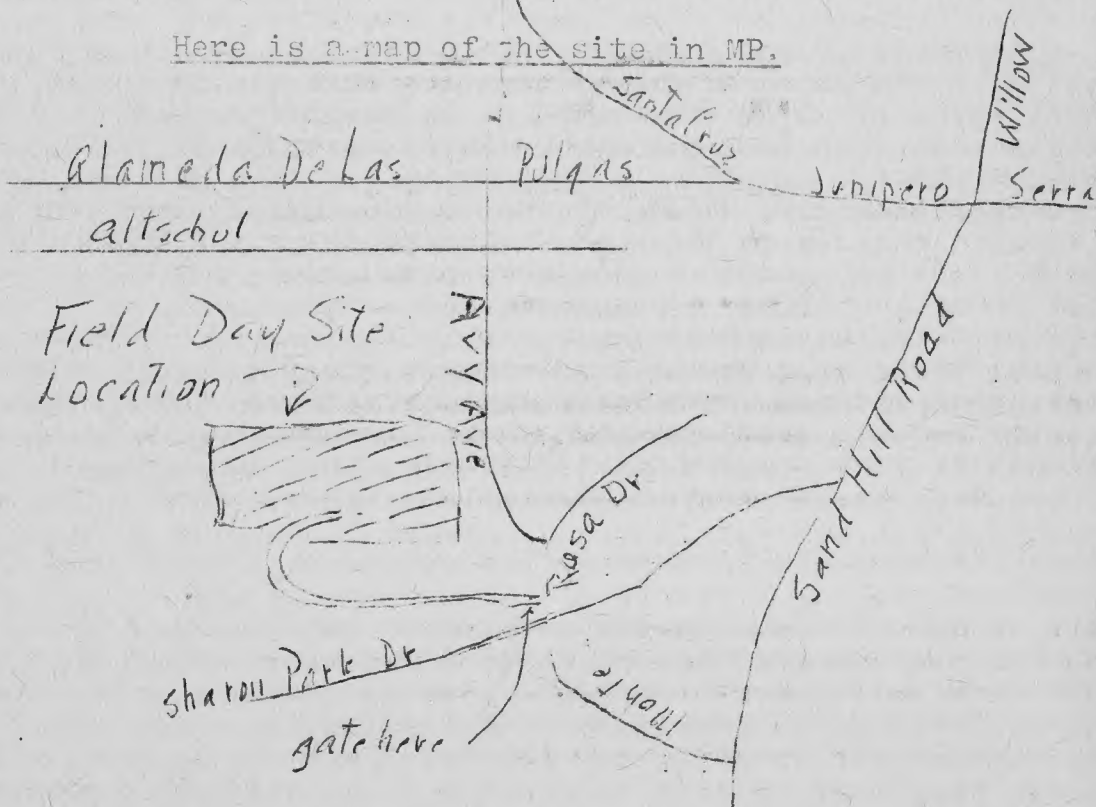 Here is a map of the site in MP.
Santa Cruz
Willow
Alameda De Las Pulgas
Junipero Serra
Altschul
Field Day Site
Location
Sand Hill Road
Rosa Dr
Sharon Park Dr
gate here
Monte